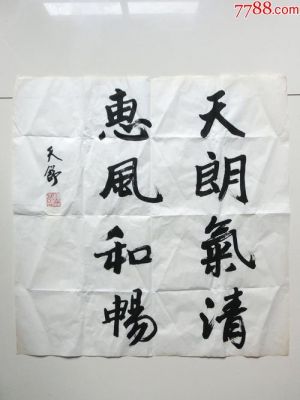 7788.com
天朗氣清
惠風和暢
天